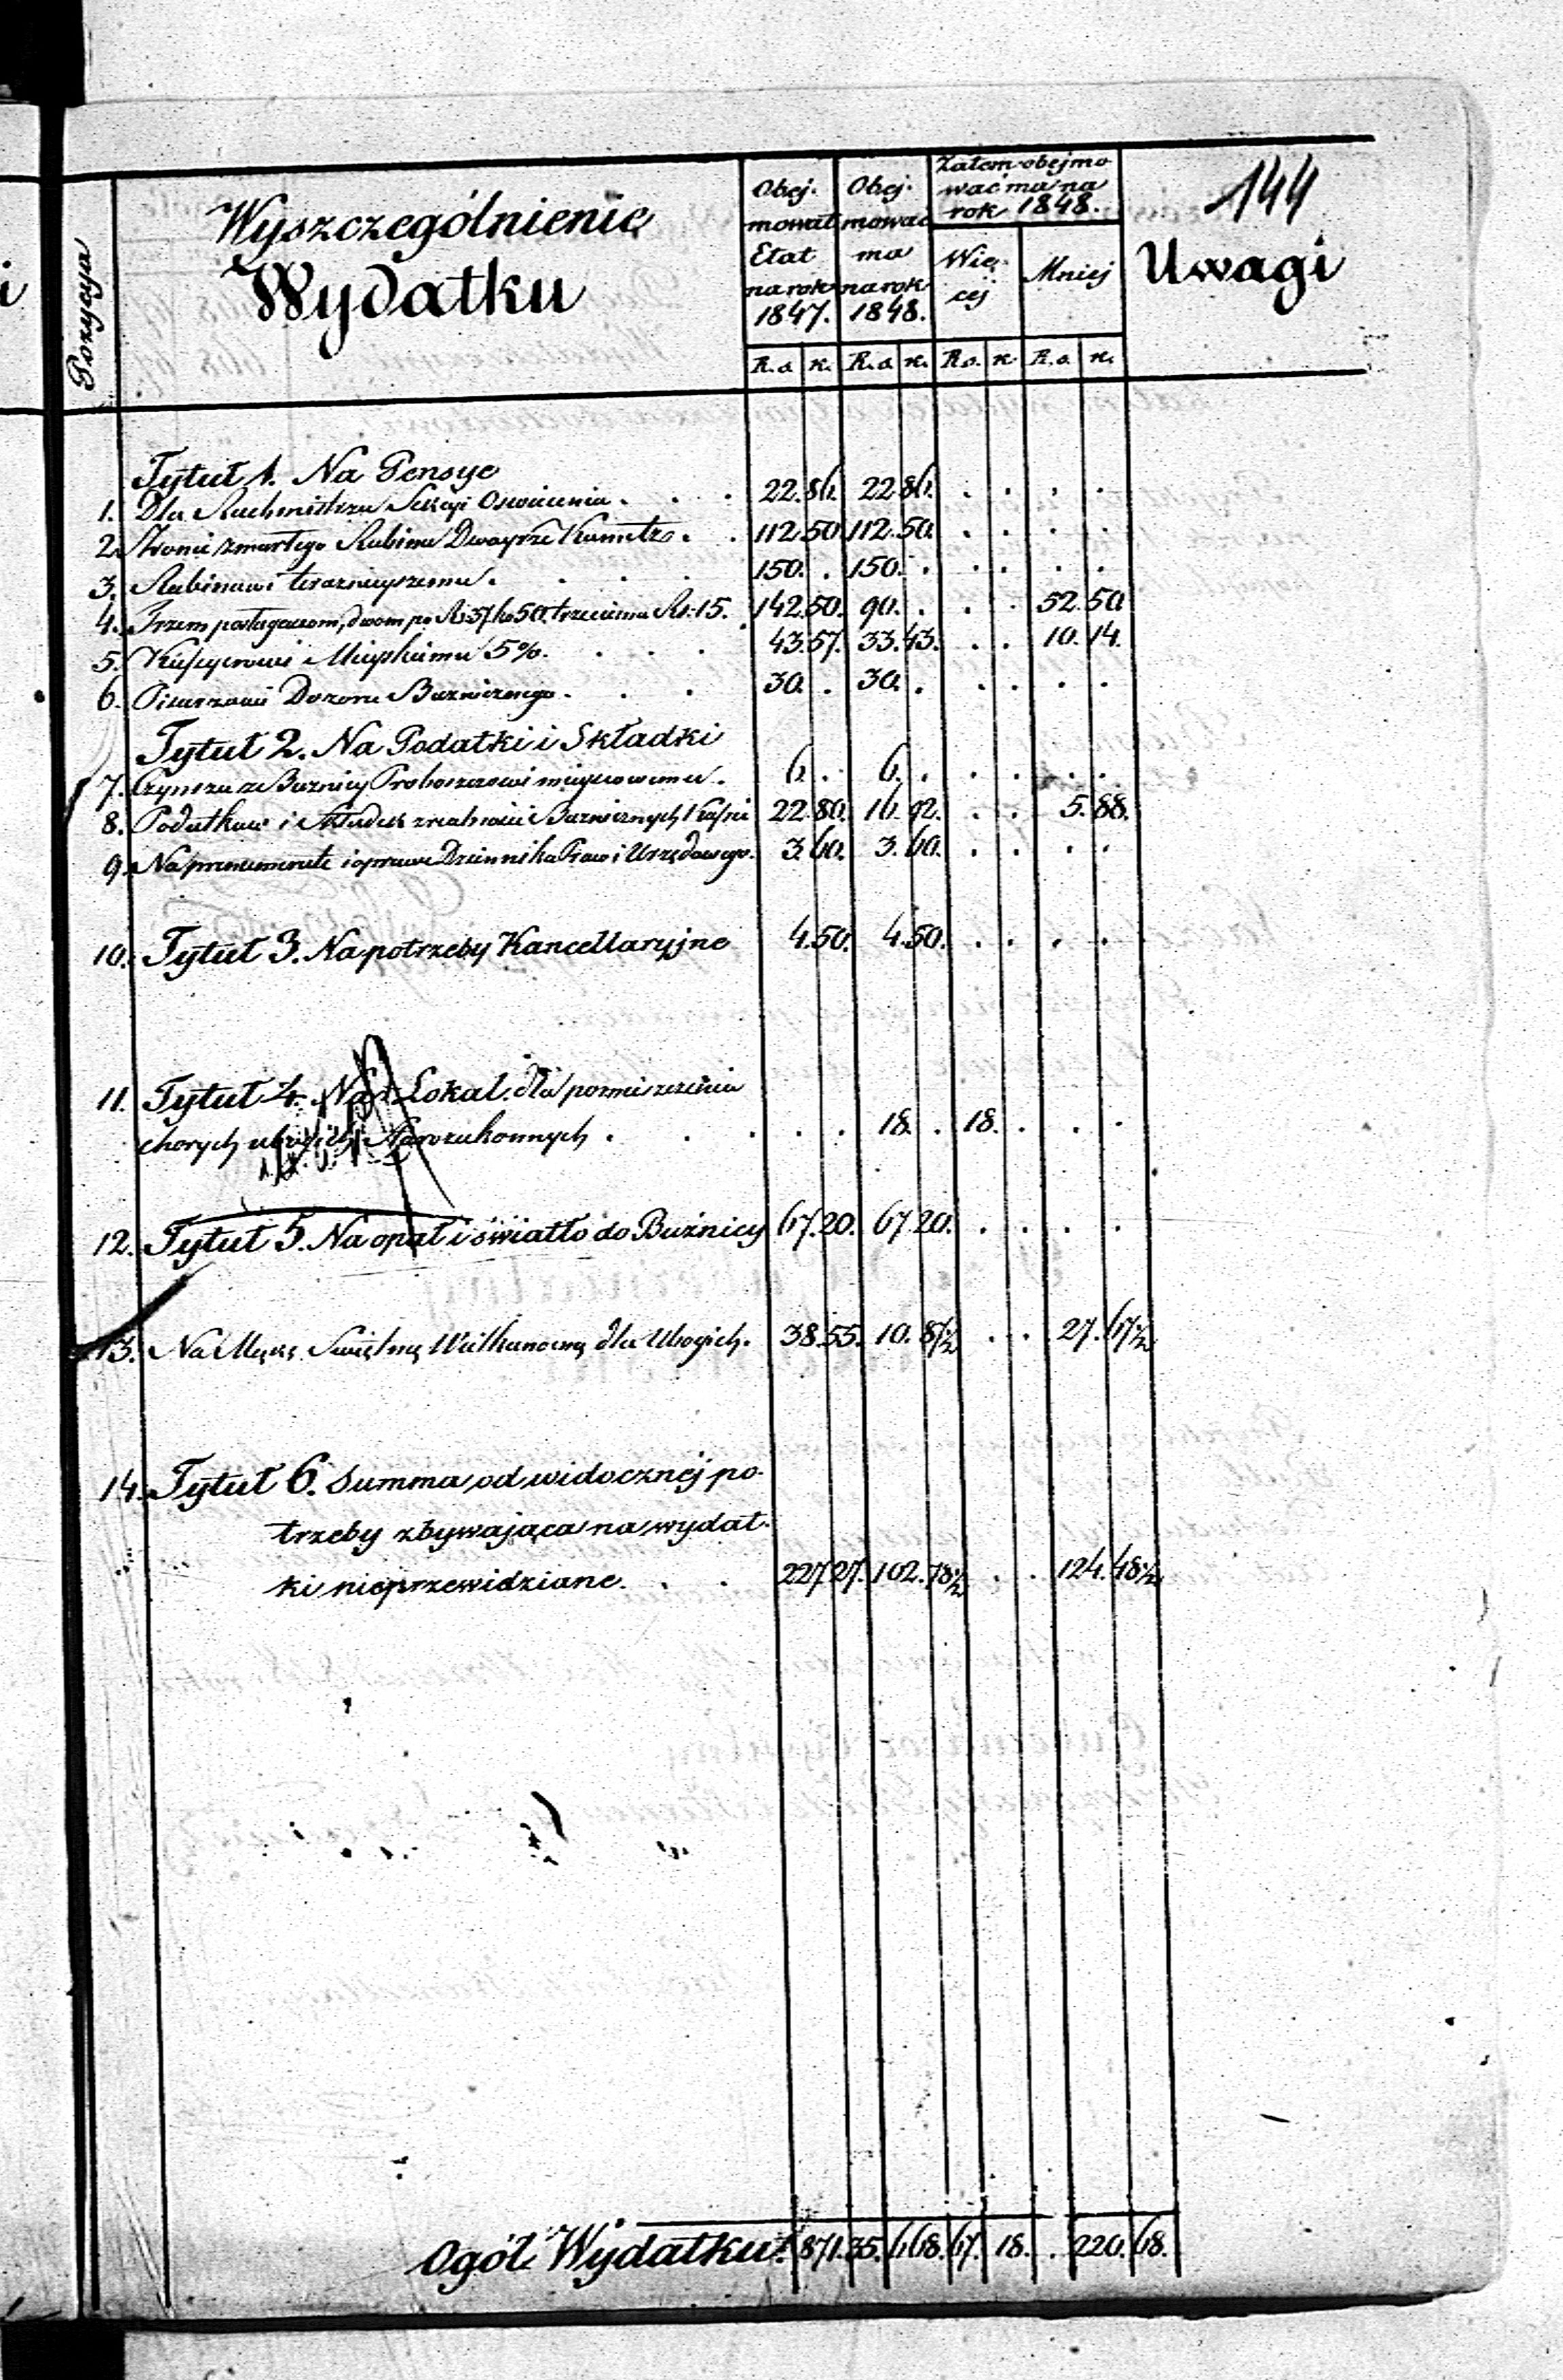 144
Pozycya
Wyszczególnienie
Wydatku
Obej-
mował
Etat
na rok
1847.
Obej-
mować
ma
na rok
1848.
Zatem obejmo
wać ma na
rok 1848.
Wię-
cej
Mniej
Uwagi
R.s. k. R.s. k. R.s. k. R.s. k.
Tytuł 1. Na Pensye
1. Dla Rachmistrza Sekcyi Oświecenia . . . 22. 86. 22. 86. . . . .
2. Żonie zmarłego Rabina Dwayrze Kametz . . 112. 50. 112. 50. . . . .
3. Rabinowi teraznieyszemu . . . . 150. . 150. . . . . .
4. Trzem posługaczom, dwom po Rs 37 ko 50. trzeciemu Rs: 15. 142. 50. 90. . . . 52. 50.
5. Kassyerowi Mieyskiemu 5%. . . . 43. 57. 33. 43. . . 10. 14.
6. Pisarzowi Dozoru Bużniczego . . . 30. . 30. . . . . .
Tytuł 2. Na Podatki i Składki
7. Czynszu ze Bużnicy Proboszczowi mieyscowemu . 6. . 6. . . . . .
8. Podatków i Składek z realności Bużnicznych Kassie 22. 80. 16. 92. . . 5. 88.
9. Na prenumeratę i oprawę Dziennika Praw i Urzędowego. 3. 60. 3. 60. . . . .
10. Tytuł 3. Na potrzeby Kancellaryjne 4. 50. 4. 50. . . . .
11. Tytuł 4. Na Lokal dla pomieszczenia
chorych ubogich Starozakonnych . . . . . 18. . 18. . . .
12. Tytuł 5. Na opał i światło do Bużnicy 67. 20. 67. 20. . . . .
13. Na Mąkę Swiętną Wielkanocną dla Ubogich. 38. 55. 10. 87½ . . 27. 67½
14. Tytuł 6. Summa od widocznéj po-
trzeby zbywająca na wydat-
ki nieprzewidziane. . . 227. 27. 102. 78½ . . 124. 48½
Ogół Wydatku. 871. 35. 668. 67. 18. . 220. 68.